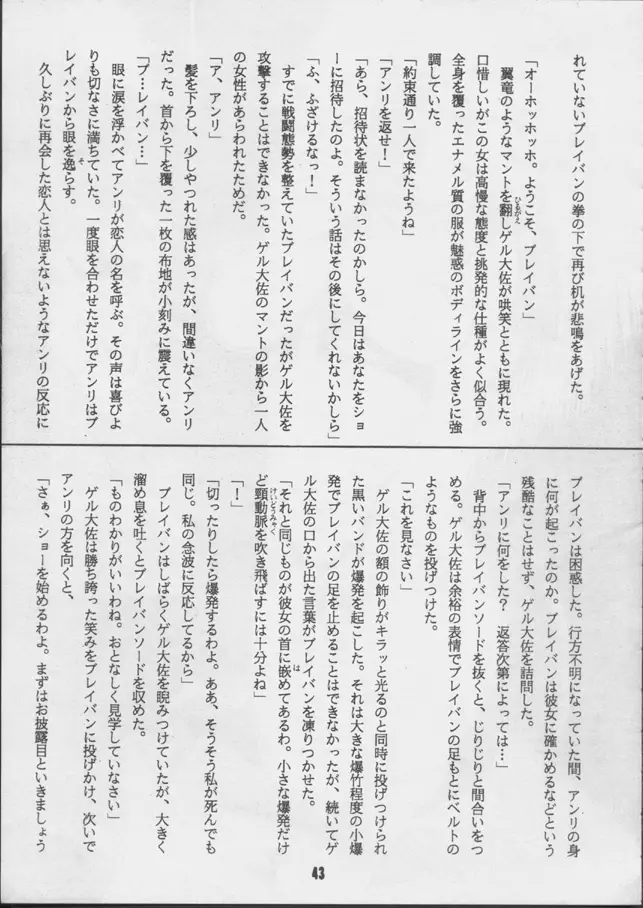 れていないブレイバンの拳の下で再び机が悲鳴をあげた。
「オーホッホッホ。ようこそ、ブレイバン」
翼竜のようなマントを翻しゲル大佐が哄笑とともに現れた。
ひるがえ
口惜しいがこの女は高慢な態度と挑発的な仕種がよく似合う。
全身を覆ったエナメル質の服が魅惑のボディラインをさらに強
調していた。
「約束通り一人で来たようね」
「アンリを返せ!」
「あら、招待状を読まなかったのかしら。今日はあなたをショ
ーに招待したのよ。そういう話はその後にしてくれないかしら」
「ふ、ふざけるなっ!」
すでに戦闘態勢を整えていたブレイバンだったがゲル大佐を
攻撃することはできなかった。ゲル大佐のマントの影から一人
の女性があらわれたためだ。
「ア、アンリ」
髪を下ろし、少しやつれた感はあったが、間違いなくアンリ
だった。首から下を覆った一枚の布地が小刻みに震えている。
「ブ…レイバン…」
眼に涙を浮かべてアンリが恋人の名を呼ぶ。その声は喜びよ
りも切なさに満ちていた。一度眼を合わせただけでアンリはブ
レイバンから眼を逸らす。
そ
久しぶりに再会した恋人とは思えないようなアンリの反応に
ブレイバンは困惑した。行方不明になっていた間、アンリの身
に何が起こったのか。ブレイバンは彼女に確かめるなどという
残酷なことはせず、ゲル大佐を詰問した。
「アンリに何をした? 返答次第によっては…」
背中からブレイバンソードを抜くと、じりじりと間合いをつ
める。ゲル大佐は余裕の表情でブレイバンの足もとにベルトの
ようなものを投げつけた。
「これを見なさい」
ゲル大佐の額の飾りがキラッと光るのと同時に投げつけられ
た黒いバンドが爆発を起こした。それは大きな爆竹程度の小爆
発でブレイバンの足を止めることはできなかったが、続いてゲ
ル大佐の口から出た言葉がブレイバンを凍りつかせた。
「それと同じものが彼女の首に嵌めてあるわ。小さな爆発だけ
は
ど頸動脈を吹き飛ばすには十分よね」
けいどうみゃく
「!」
「切ったりしたら爆発するわよ。ああ、そうそう私が死んでも
同じ。私の念波に反応してるから」
ブレイバンはしばらくゲル大佐を睨みつけていたが、大きく
溜め息を吐くとブレイバンソードを収めた。
「ものわかりがいいわね。おとなしく見学していなさい」
ゲル大佐は勝ち誇った笑みをブレイバンに投げかけ、次いで
アンリの方を向くと、
「さぁ、ショーを始めるわよ。まずはお披露目といきましょう
43